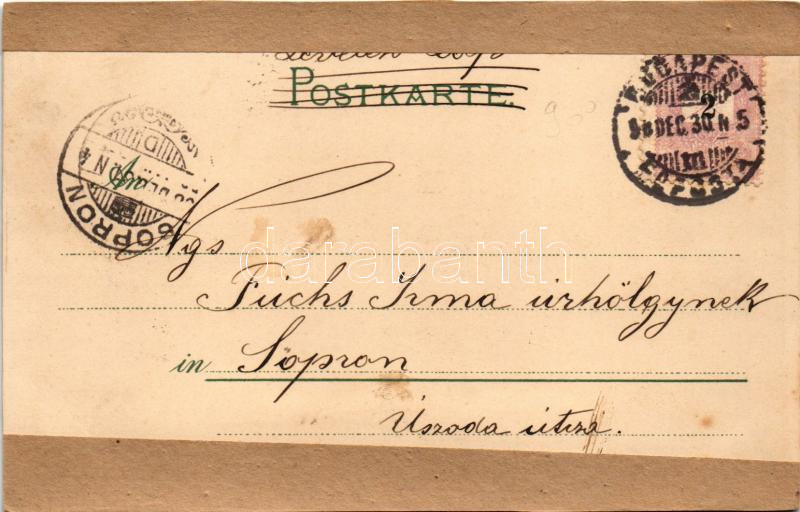 Levelező Lap
POSTKARTE.
BUDAPEST
2
98 DEC. 30. N. 5
FŐPOSTA
An
SOPRON
Ngs
Fuchs Irma úrhölgynek
in Sopron
Uszoda útcza.
darabanth